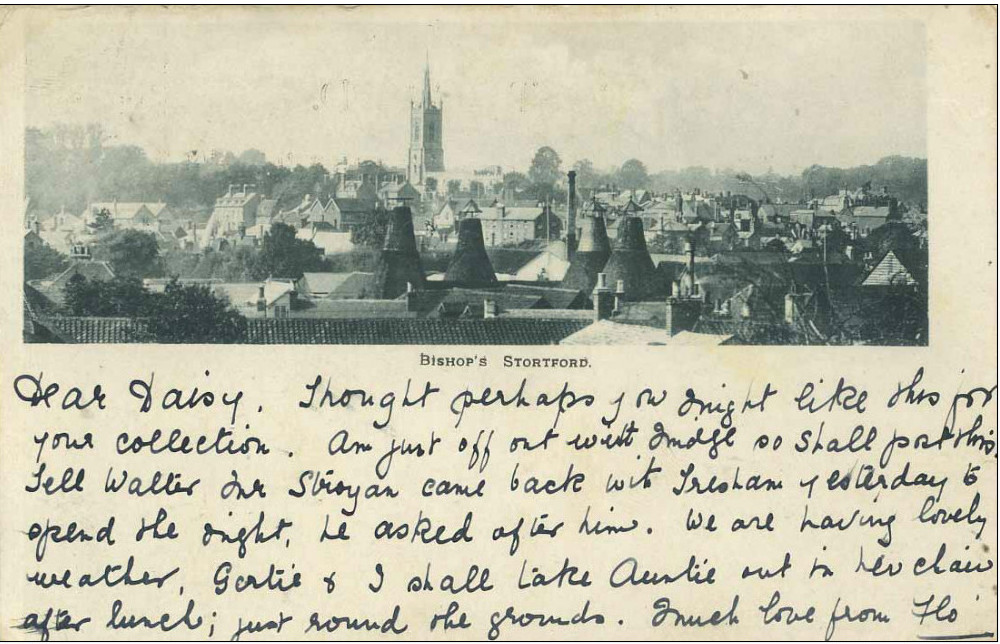 BISHOP'S STORTFORD.
Dear Daisy. Thought perhaps you might like this for
your collection. Am just off out with Midge so shall post this.
Tell Walter Mr Stroyan came back with Tresham yesterday to
spend the night, he asked after him. We are having lovely
weather, Gertie & I shall take Auntie out in her chair
after lunch; just round the grounds. Much love from Flo